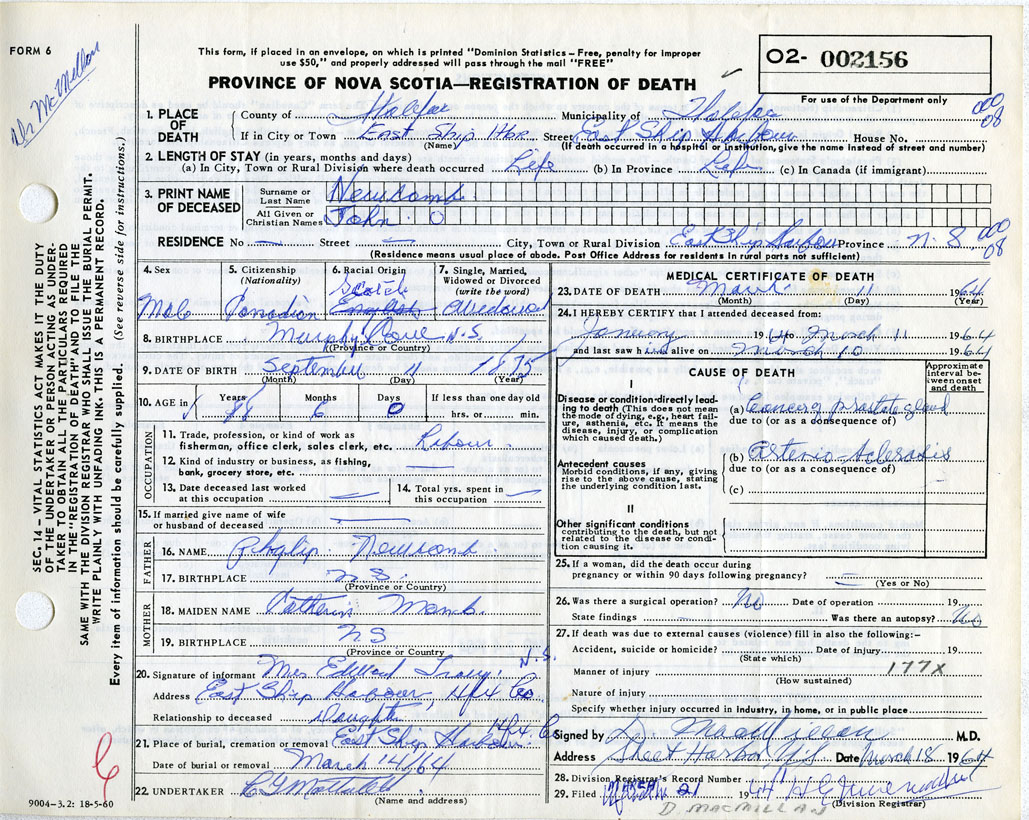 FORM 6
Dr McMillan
This form, if placed in an envelope, on which is printed "Dominion Statistics – Free, penalty for improper
use $50," and properly addressed will pass through the mail "FREE"
PROVINCE OF NOVA SCOTIA—REGISTRATION OF DEATH
02- 002156
For use of the Department only
000
08
1. PLACE OF DEATH
County of Halifax Municipality of Halifax
If in City or Town East Ship Hbr. Street East Ship Harbour House No.
(Name) (If death occurred in a hospital or institution, give the name instead of street and number)
2. LENGTH OF STAY (in years, months and days)
(a) In City, Town or Rural Division where death occurred Life (b) In Province Life (c) In Canada (if immigrant)
3. PRINT NAME OF DECEASED
Surname or Last Name Newcomb
All Given or Christian Names John
000
08
RESIDENCE No — Street — City, Town or Rural Division East Ship Harbour Province N. S
(Residence means usual place of abode. Post Office Address for residents in rural parts not sufficient)
4. Sex
Male
5. Citizenship (Nationality)
Canadian
6. Racial Origin
Scotch
English
7. Single, Married, Widowed or Divorced (write the word)
Widowed
8. BIRTHPLACE Murphy Cove N.S
(Province or Country)
9. DATE OF BIRTH September 11 1875
(Month) (Day) (Year)
10. AGE in Years 88 Months 6 Days 0 If less than one day old
hrs. or min.
OCCUPATION
11. Trade, profession, or kind of work as
fisherman, office clerk, sales clerk, etc.
12. Kind of industry or business, as fishing,
bank, grocery store, etc. —
13. Date deceased last worked
at this occupation —
14. Total yrs. spent in
this occupation —
15. If married give name of wife
or husband of deceased —
FATHER
16. NAME Newcomb
17. BIRTHPLACE N S.
(Province or Country)
MOTHER
18. MAIDEN NAME
19. BIRTHPLACE N S
(Province or Country)
20. Signature of informant Mrs Edward N.S.
Address East Ship Harbour, Hfx Co
Relationship to deceased Daughter
21. Place of burial, cremation or removal East Ship Harbour Hfx. Co
Date of burial or removal March 14/64
22. UNDERTAKER
(Name and address)
9004–3.2: 18-5-60
MEDICAL CERTIFICATE OF DEATH
23. DATE OF DEATH March 11 1964
(Month) (Day) (Year)
24. I HEREBY CERTIFY that I attended deceased from:
January 19 to March 11 1964
and last saw him alive on March 10 1964
CAUSE OF DEATH
Approximate interval between onset and death
I
Disease or condition directly leading to death (This does not mean the mode of dying, e.g., heart failure, asthenia, etc. It means the disease, injury, or complication which caused death.)
(a) Cancer, prostate gland
due to (or as a consequence of)
(b) Arterio-sclerosis
due to (or as a consequence of)
(c)
Antecedent causes
Morbid conditions, if any, giving rise to the above cause, stating the underlying condition last.
II
Other significant conditions
contributing to the death, but not related to the disease or condition causing it.
25. If a woman, did the death occur during
pregnancy or within 90 days following pregnancy? —
(Yes or No)
26. Was there a surgical operation? No Date of operation 19
State findings — Was there an autopsy? No
27. If death was due to external causes (violence) fill in also the following:–
Accident, suicide or homicide? Date of injury 19
(State which)
Manner of injury 177X
(How sustained)
Nature of injury
Specify whether injury occurred in industry, in home, or in public place
Signed by D. MacMillan M.D.
Address Sheet Harbor N S Date March 18 1964
28. Division Registrar's Record Number
29. Filed MARCH 21 1964
(Division Registrar)
D. MACMILLAN
SEC. 14 – VITAL STATISTICS ACT MAKES IT THE DUTY
OF THE UNDERTAKER OR PERSON ACTING AS UNDER-
TAKER TO OBTAIN ALL THE PARTICULARS REQUIRED
IN THE "REGISTRATION OF DEATH" AND TO FILE THE
SAME WITH THE DIVISION REGISTRAR WHO SHALL ISSUE THE BURIAL PERMIT.
WRITE PLAINLY WITH UNFADING INK. THIS IS A PERMANENT RECORD.
Every item of information should be carefully supplied. (See reverse side for instructions.)